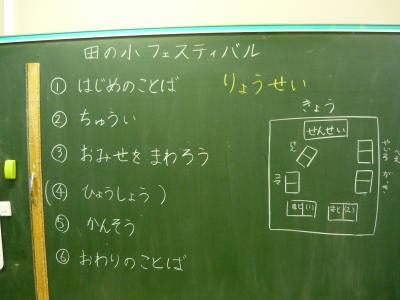 田の小フェスティバル
① はじめのことば
りょうせい
② ちゅうい
③ おみせを まわろう
(④ ひょうしょう )
⑤ かんそう
⑥ おわりのことば
きょう
せんせい